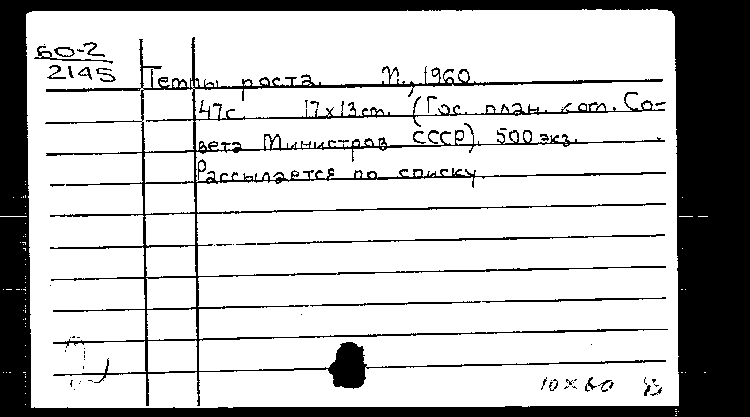 60-2
2145
Темпы роста. М., 1960.
47с. 17х13см. (Гос. план. ком. Со-
вета Министров СССР). 500 экз.
Рассылается по списку.
10 X 60